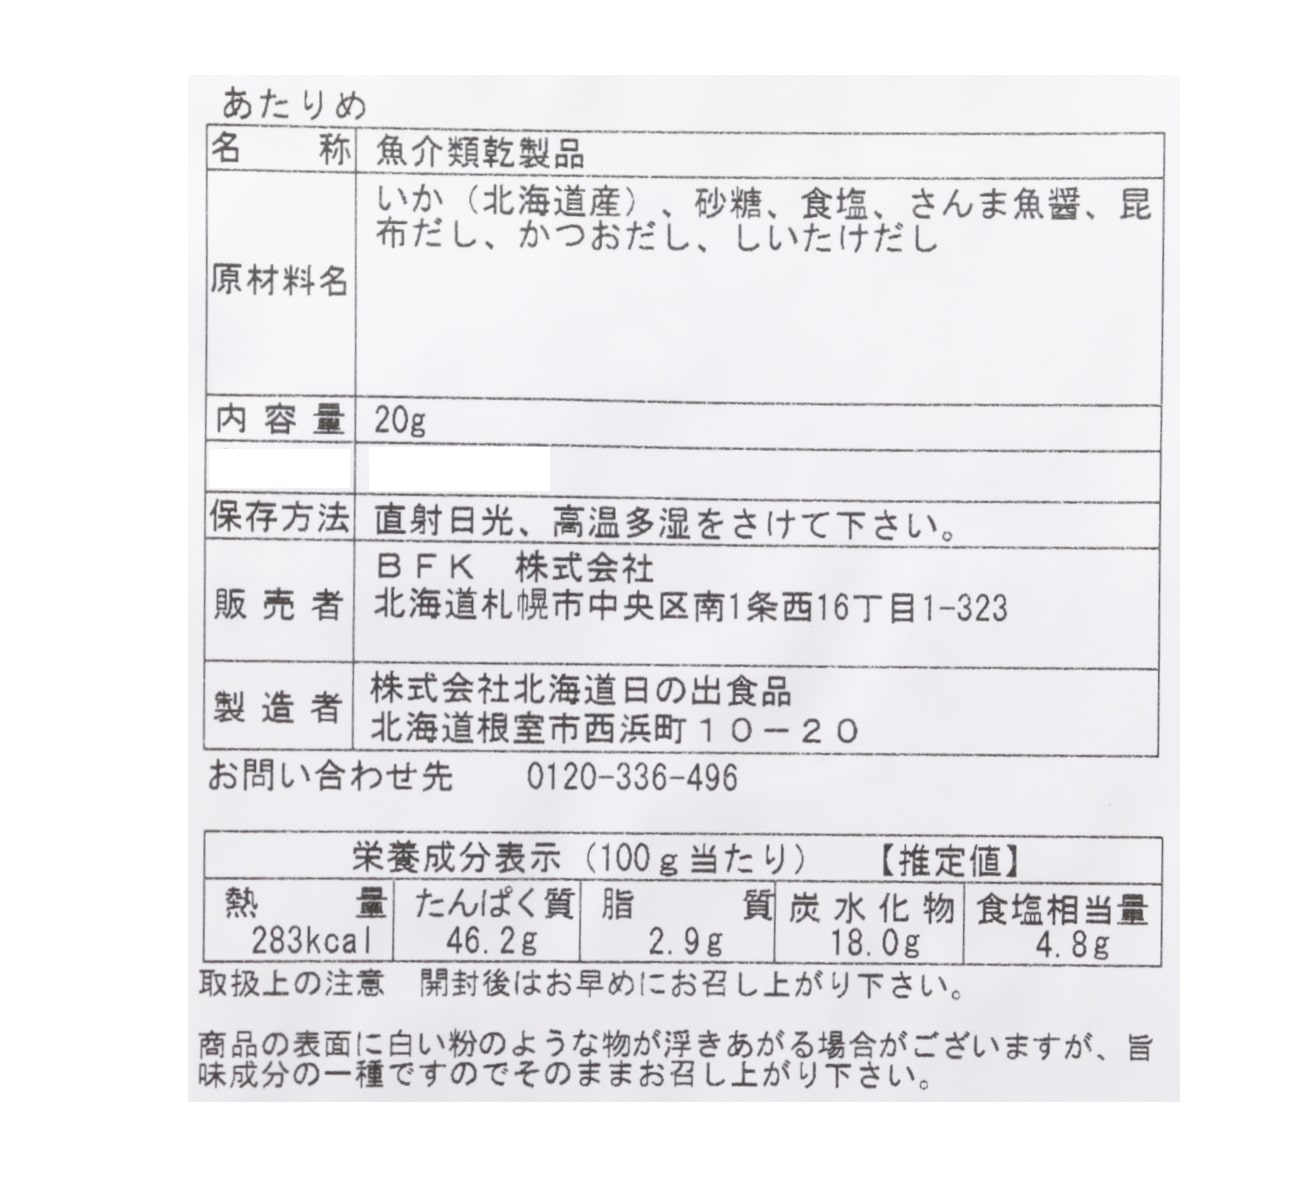 あたりめ
名称 魚介類乾製品
原材料名 いか（北海道産）、砂糖、食塩、さんま魚醤、昆
布だし、かつおだし、しいたけだし
内容量 20g
保存方法 直射日光、高温多湿をさけて下さい。
販売者 ＢＦＫ 株式会社
北海道札幌市中央区南1条西16丁目1-323
製造者 株式会社北海道日の出食品
北海道根室市西浜町１０－２０
お問い合わせ先 0120-336-496
栄養成分表示（100g当たり） 【推定値】
熱量 たんぱく質 脂質 炭水化物 食塩相当量
283kcal 46.2g 2.9g 18.0g 4.8g
取扱上の注意 開封後はお早めにお召し上がり下さい。
商品の表面に白い粉のような物が浮きあがる場合がございますが、旨
味成分の一種ですのでそのままお召し上がり下さい。